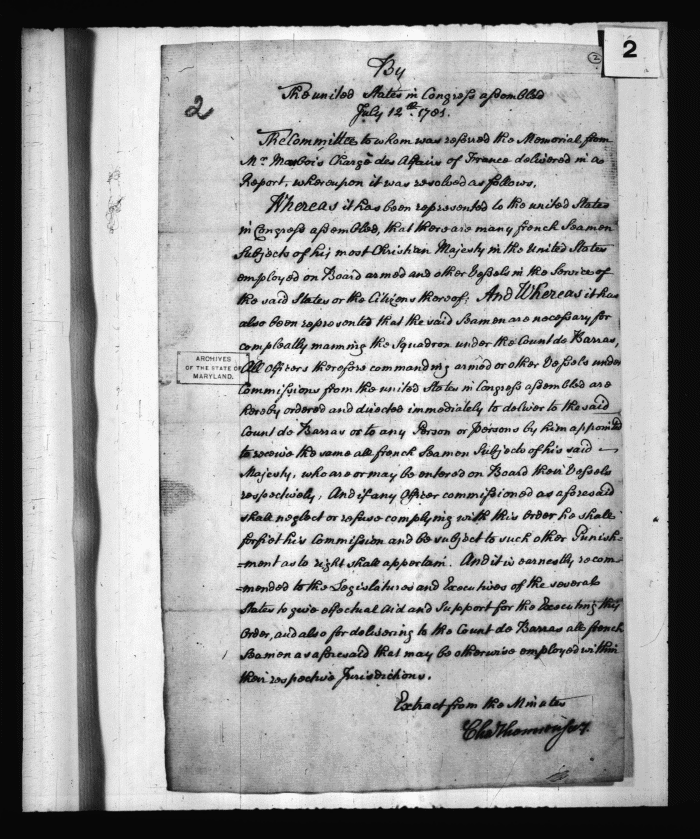 2
2
2
By
The united States in Congress assembled
July 12th. 1781.
The Committee to whom was referred the Memorial from
Mr. Marbois Chargé des Affairs of France delivered in a
Report, whereupon it was resolved as follows,
Whereas it has been represented to the united States
in Congress assembled, that there are many french Seamen
Subjects of his most Christian Majesty in the United States
employed on Board armed and other Vessels in the Service of
the said States or the Citizens thereof; And Whereas it has
also been represented that the said Seamen are necessary for
compleatly manning the Squadron under the Count de Barras,
All Officers therefore commanding armed or other Vessels under
Commissions from the united States in Congress assembled are
hereby ordered and directed immediately to deliver to the said
Count de Barras or to any Person or Persons by him appointed
to receive the same all french Seamen Subjects of his said
Majesty, who are or may be entered on Board their Vessels
respectively, And if any Officer commissioned as aforesaid
shall neglect or refuse complying with this Order he shall
forfiet his Commission and be subject to such other Punish=
=ment as to right shall appertain. And it is earnestly recom=
=mended to the Legislatures and Executives of the several
States to give effectual Aid and Support for the Executing this
Order, and also for delivering to the Count de Barras all french
Seamen as aforesaid that may be otherwise employed within
their respective Jurisdictions.
Extract from the Minutes
Cha Thomson Secy.
ARCHIVES
OF THE STATE OF
MARYLAND.